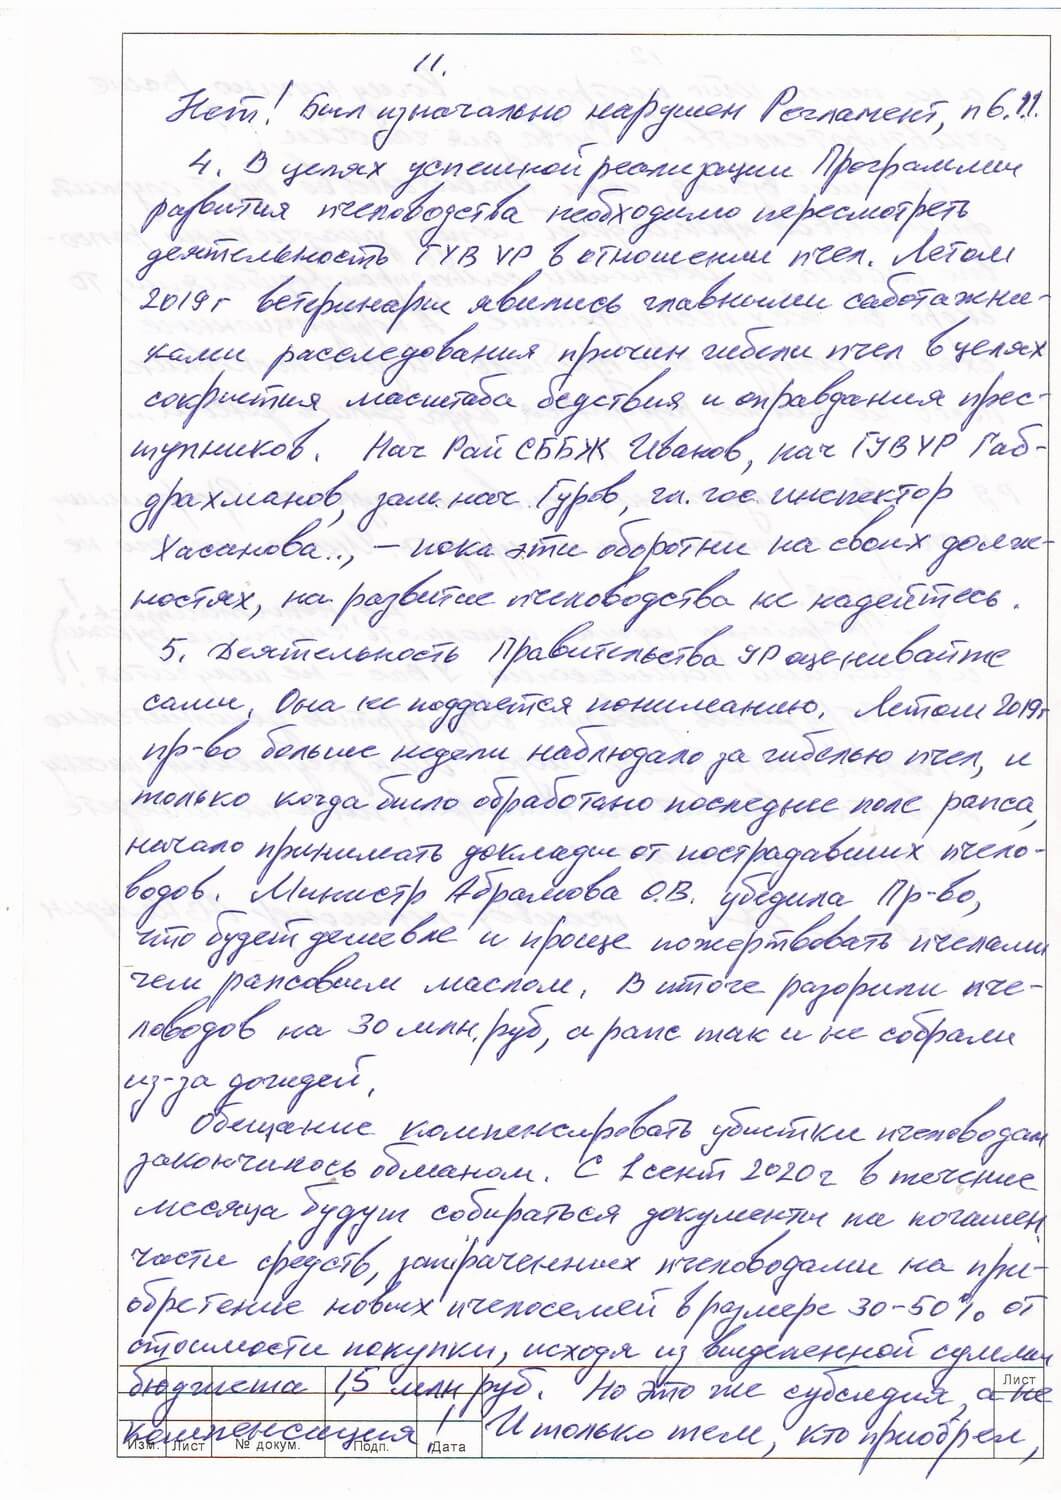 11.
Нет! Был изначально нарушен Регламент, п 6.11.
4. В целях успешной реализации Программы
развития пчеловодства необходимо пересмотреть
деятельность ГУВ УР в отношении пчел. Летом
2019 г ветеринары явились главными саботажни-
ками расследования причин гибели пчел в целях
сокрытия масштаба бедствия и оправдания прес-
тупников. Нач Рай СББЖ Иванов, нач ГУВ УР Габ-
драхманов, зам. нач. Гуров, гл. гос. инспектор
Хасанова.., – пока эти оборотни на своих долж-
ностях, на развитие пчеловодства не надейтесь.
5. Деятельность Правительства УР оценивайте
сами. Она не поддается пониманию. Летом 2019г
пр-во больше недели наблюдало за гибелью пчел, и
только когда было обработано последнее поле рапса,
начало принимать доклады от пострадавших пчело-
водов. Министр Абрамова О.В. убедила Пр-во,
что будет дешевле и проще пожертвовать пчелами
чем рапсовым маслом. В итоге разорили пче-
ловодов на 30 млн. руб, а рапс так и не собрали
из-за дождей.
Обещание компенсировать убытки пчеловодам
закончилось обманом. С 1 сент 2020 г в течение
месяца будут собираться документы на погашен.
части средств, затраченных пчеловодами на при-
обретение новых пчелосемей в размере 30-50% от
стоимости покупки, исходя из выделенной суммы
бюджета 1,5 млн руб. Но это же субсидия, а не
компенсация! И только тем, кто приобрел,
Лист
Изм. Лист № докум. Подп. Дата